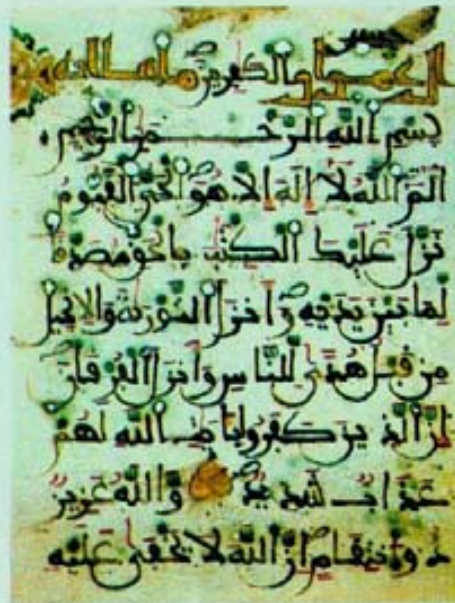 الكفرين
بِسْمِ اللَّهِ الرَّحْمَٰنِ الرَّحِيمِ
الَمَ اللَّهُ لَا إِلَهَ إِلَّا هُوَ الْحَيُّ الْقَيُّومُ
نَزَّلَ عَلَيْكَ الْكِتَبَ بِالْحَقِّ مُصَدِّقًا
لِمَا بَيْنَ يَدَيْهِ وَأَنْزَلَ التَّوْرَيةَ وَالْإِنْجِيلَ
مِنْ قَبْلُ هُدًى لِلنَّاسِ وَأَنْزَلَ الْفُرْقَانَ
إِنَّ الَّذِينَ كَفَرُوا بِايَتِ اللَّهِ لَهُمْ
عَذَابٌ شَدِيدٌ وَاللَّهُ عَزِيزٌ
ذُو انْتِقَامٍ إِنَّ اللَّهَ لَا يَخْفَى عَلَيْهِ